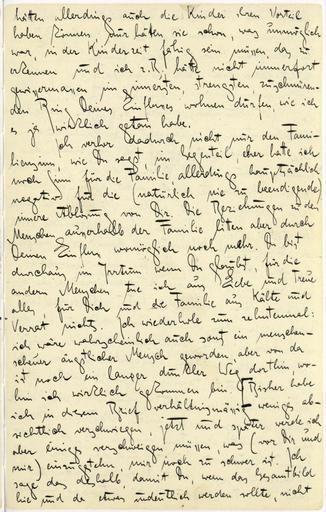 hätten allerdings auch die Kinder ihren Vorteil
haben können, nur hätten sie schon, was unmöglich
war, in der Kinderzeit fähig sein müssen, das zu
erkennen und ich z.B. hätte nicht immerfort
gewissermassen im innersten, strengsten, zuschnüren-
den Ring Deines Einflusses wohnen dürfen, wie ich
es ja wirklich getan habe.
Ich verlor dadurch nicht nur den Fami-
liensinn, wie Du sagst, im Gegenteil, eher hatte ich
noch Sinn für die Familie, allerdings hauptsächlich
negativ für die (natürlich nie zu beendigende)
innere Ablösung von Dir. Die Beziehungen zu den
Menschen ausserhalb der Familie litten aber durch
Deinen Einfluss womöglich noch mehr. Du bist
durchaus im Irrtum wenn Du glaubst, für die
andern Menschen tue ich aus Liebe und Treue
alles, für Dich und die Familie aus Kälte und
Verrat nichts. Ich wiederhole zum zehntenmal:
ich wäre wahrscheinlich auch sonst ein menschen-
scheuer ängstlicher Mensch geworden, aber von da
ist noch ein langer dunkler Weg dorthin wo-
hin ich wirklich gekommen bin. Bisher habe
ich in diesem Brief verhältnismässig weniges ab-
sichtlich verschwiegen, jetzt und später werde ich
aber einiges verschweigen müssen, was (vor Dir und
mir) einzugestehn, mir noch zu schwer ist. Ich
sage das deshalb, damit Du, wenn das Gesamtbild
hie und da etwas undeutlich werden sollte, nicht